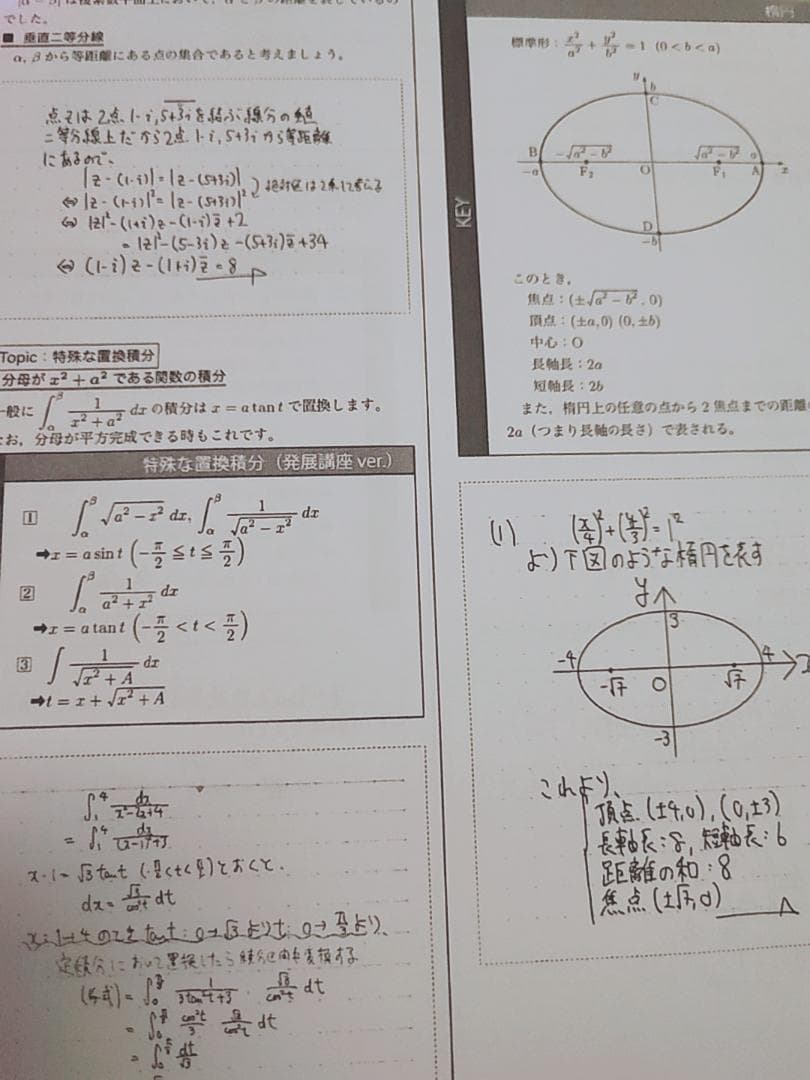 でした。
■ 垂直二等分線
α, β から等距離にある点の集合であると考えましょう。
点zは2点 1-i, 5+3iを結ぶ線分の垂直
二等分線上だから2点 1-i, 5+3iから等距離
にあるので、
|z-(1-i)|=|z-(5+3i)|
⇔ |z-(1-i)|²=|z-(5+3i)|²
⇔ |z|²-(1+i)z-(1-i)z̄+2
=|z|²-(5-3i)z-(5+3i)z̄+34
⇔ (1-i)z-(1+i)z̄=8
Topic：特殊な置換積分
分母が x²+a² である関数の積分
一般に ∫_α^β 1/(x²+a²) dx の積分は x = a tan t で置換します。
なお，分母が平方完成できる時もこれです。
特殊な置換積分（発展講座 ver.）
1 ∫_α^β √(a²-x²) dx, ∫_α^β 1/√(a²-x²) dx
➡x = a sin t (-π/2 ≦ t ≦ π/2)
2 ∫_α^β 1/(a²+x²) dx
➡x = a tan t (-π/2 < t < π/2)
3 ∫ 1/√(x²+A) dx
➡t = x + √(x²+A)
∫_1^4 dx/(x²-2x+4)
= ∫_1^4 dx/((x-1)²+3)
x-1=√3 tan t (-π/2<t<π/2)とおくと、
dx = √3/cos²t dt
x:1→4 のとき tan t: 0→√3 より t: 0→π/3 より、
定積分において置換したら積分区間も変換する
(与式) = ∫_0^(π/3) 1/(3tan²t+3) √3/cos²t dt
= ∫_0^(π/3) cos²t/3 √3/cos²t dt
= ∫_0^(π/3) dt/√3
楕円
標準形：x²/a² + y²/b² = 1 (0 < b < a)
y
b
C
B
-√(a²-b²)
√(a²-b²)
a
-a
F₂
O
F₁
A
x
D
-b
KEY
このとき，
焦点：(±√(a²-b²), 0)
頂点：(±a, 0) (0, ±b)
中心：O
長軸長：2a
短軸長：2b
また，楕円上の任意の点から 2 焦点までの距離の
2a（つまり長軸の長さ）で表される。
(1) (x/4)²+(y/3)²=1²
より下図のような楕円を表す
y
3
-4
4
-√7
O
√7
-3
これより、
頂点 (±4,0), (0,±3)
長軸長:8, 短軸長:6
距離の和:8
焦点 (±√7,0)